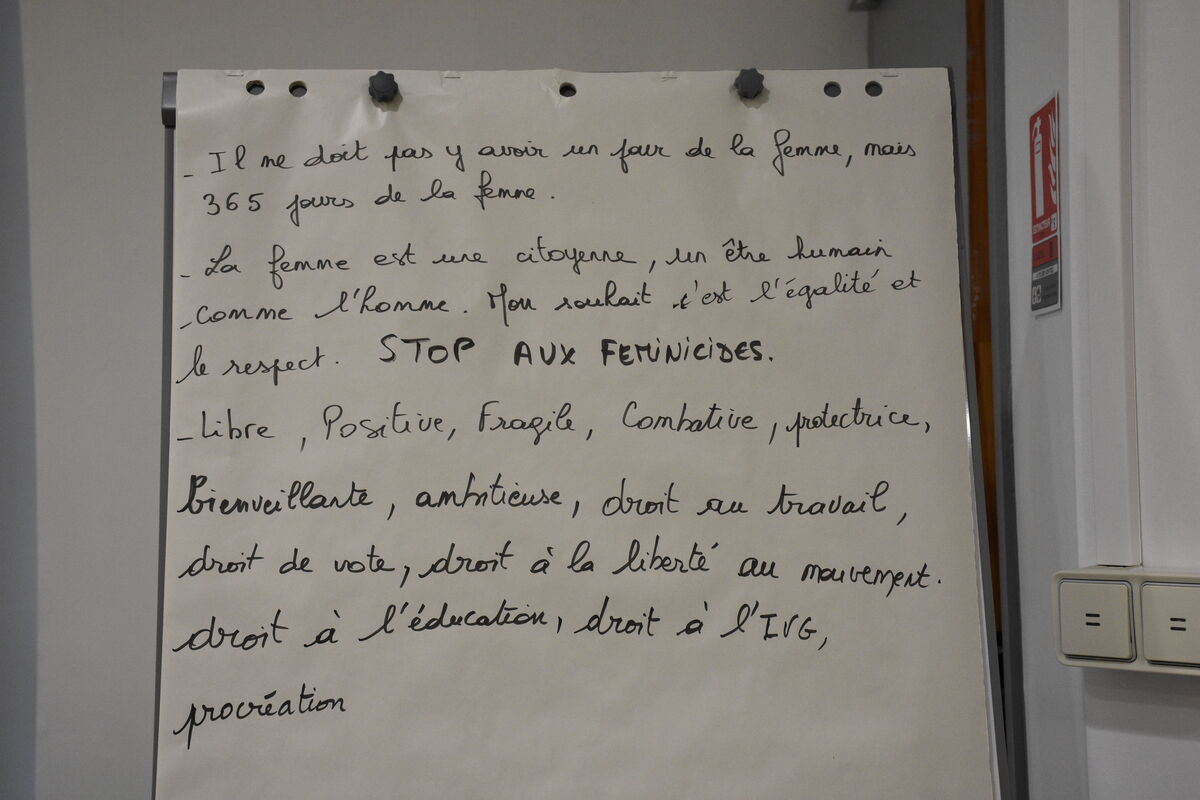 - Il ne doit pas y avoir un jour de la femme, mais
365 jours de la femme.
- La femme est une citoyenne, un être humain
comme l'homme. Mon souhait c'est l'égalité et
le respect. STOP AUX FEMINICIDES.
- Libre, Positive, Fragile, Combative, protectrice,
Bienveillante, ambitieuse, droit au travail,
droit de vote, droit à la liberté au mouvement.
droit à l'éducation, droit à l'IVG,
procréation